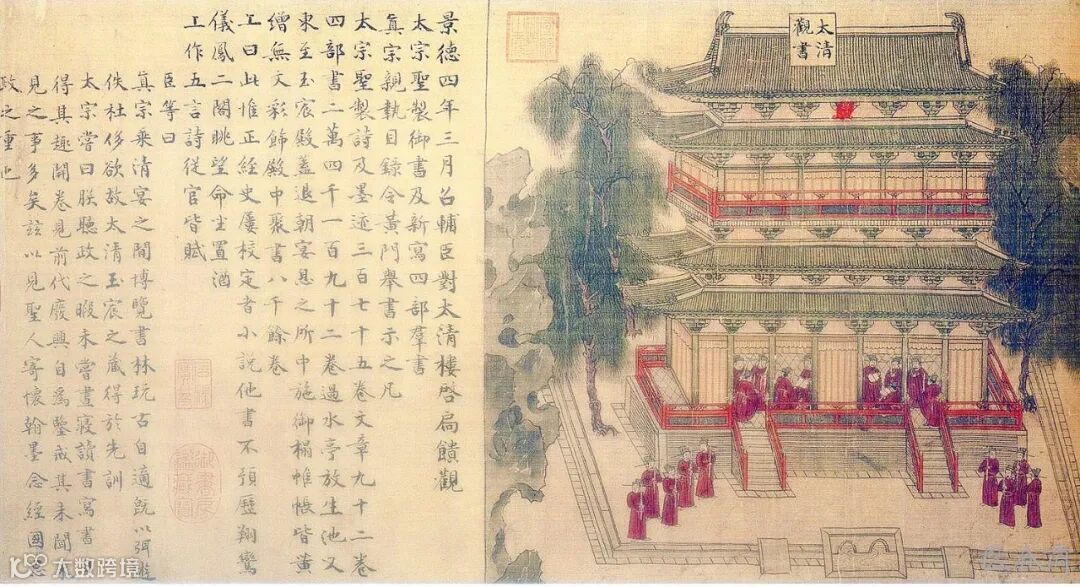 太清
觀書
景德四年三月召輔臣對太清樓啓扃饋觀
太宗聖製御書及新寫四部羣書
真宗親執目錄令黃門舉書示之凡
太宗聖製詩及墨迹三百七十五卷文章九十二卷
四部書二萬四千一百九十二卷過水亭放生池又
東至玉宸殿蓋退朝宴息之所中施御榻帷帳皆黃
繒無文彩飾殿中聚書八千餘卷
工曰此惟正經史屢校定者小說他書不預歷翔鸞
儀鳳二閣眺望命坐置酒
工作五言詩従官皆賦
臣等曰
真宗乘清宴之間博覽書林玩古自適旣以弭遊
佚杜侈欲故太清玉宸之藏得於先訓
太宗嘗曰朕聽政之暇未嘗晝寢讀書寫書
得其趣開卷見前代廢興自爲鑒戒其未聞
見之事多矣玆以見聖人寄懷翰墨念經國
政之重也
大数跨境